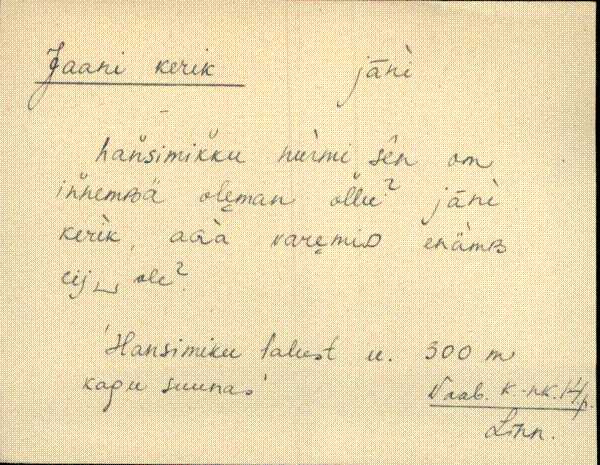 Jaani kerik jāǹi
hańsimikku nùrmi sên om
ińnemʙä olęman ollu² jāǹi
kerìk, aGà varęmiD enämʙ
eij‿ole².
'Hansimiku talust u. 300 m
kagu suunas'
Vaab. k.-nk. 14 p.
Linn.